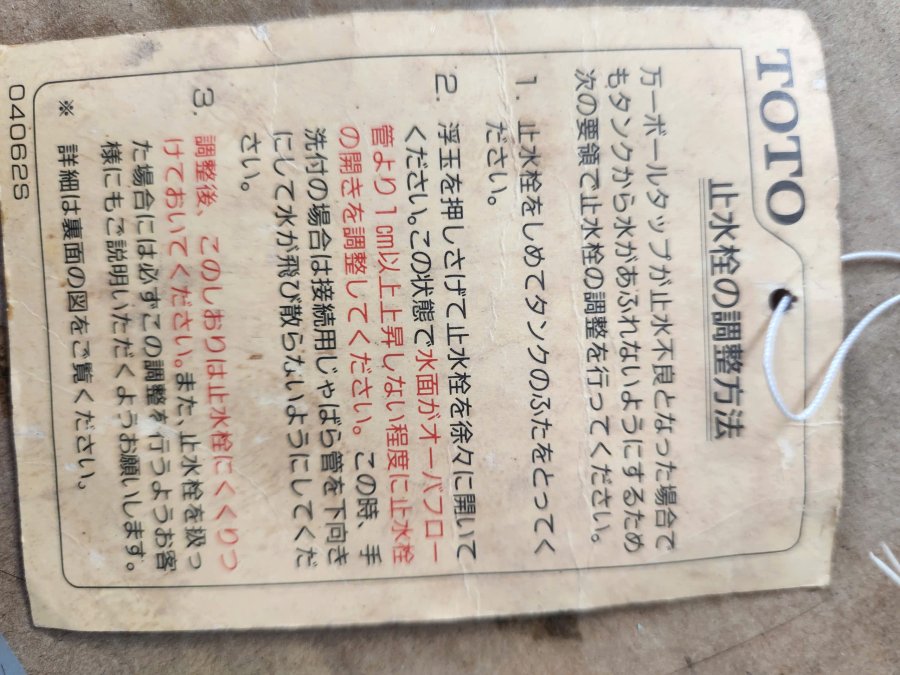 TOTO
止水栓の調整方法
万一ボールタップが止水不良となった場合で
もタンクから水があふれないようにするため
次の要領で止水栓の調整を行ってください。
1. 止水栓をしめてタンクのふたをとってく
ださい。
2. 浮玉を押しさげて止水栓を徐々に開いて
ください。この状態で水面がオーバフロー
管より1cm以上上昇しない程度に止水栓
の開きを調整してください。この時、手
洗付の場合は接続用じゃばら管を下向き
にして水が飛び散らないようにしてくだ
さい。
3. 調整後、このしおりは止水栓にくくりつ
けておいてください。また、止水栓を扱っ
た場合には必ずこの調整を行うようお客
様にもご説明いただくようお願いします。
※ 詳細は裏面の図をご覧ください。
04062S